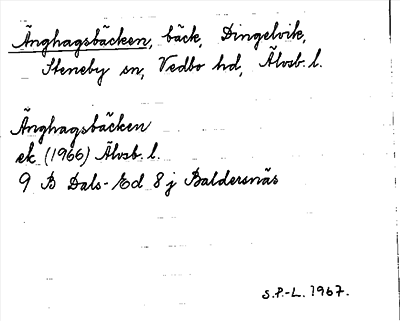 Änghagsbäcken, bäck, Dingelvik,
Steneby sn, Vedbo hd, Älvsb. l.
Änghagsbäcken
ek. (1966) Älvsb. l.
9 B Dals-Ed 8 j Baldersnäs
S.P.-L. 1967.